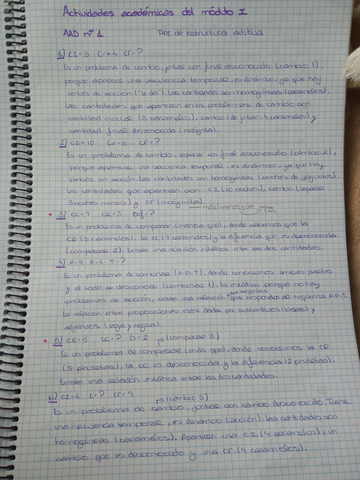 Actividades académicas del módulo I
AAD nº 1 PAE de estructura aditiva
1) CI=3 C=4 CF=?
Es un problema de cambio, juntar con final desconocido (cambio 1),
porque aparece una secuencia temporal, es dinámico, ya que hay
verbos de acción. Las cantidades son homogéneas (caramelos).
Las cantidades que aparecen en los problemas de cambio son
cantidad inicial (3 caramelos), cambio (4 caramelos) y
cantidad final desconocida (incógnita).
2) CI=10 C=3 CF=?
Es un problema de cambio, separar con final desconocido (cambio 2),
porque aparece una secuencia temporal, es dinámico, ya que hay
verbos en acción. Las cantidades son homogéneas (coches de juguetes)
Las cantidades que aparecen son CI (10 coches), cambio (separa
3 coches menos) y CF (incógnita).
3) CC=7 CR=3 Dif=?
Es un problema de comparar (menos que), donde sabemos que la
CR (3 caramelos), la CC (7 caramelos) y la diferencia que es desconocida
(comparar 2). Existe una relación estática entre las dos cantidades.
4) P=4 P=5 T=?
Es un problema de combinar (P.P.T), donde conocemos ambas partes
y el todo es desconocido (combinar 1). Es estático porque no hay
problemas de acción, existe una relación
La relación entre proposiciones viene dadas por sustantivos (bolas) y
adjetivos (rojas y negras).
5) CR=5 CC=? D=2 → (comparar 3)
Es un problema de comparar (más que), donde conocemos la CR
(5 piruletas), la CC es desconocida y la diferencia (2 piruletas).
Existe una relación estática entre las dos cantidades.
6) CI=4 C=? CF=9 → (cambio 3)
Es un problema de cambio, juntar con cambio desconocido. Tiene
una secuencia temporal, es dinámico (acción). Las cantidades son
homogéneas (caramelos). Aparecen una CI (4 caramelos), un
cambio que es desconocido y una CF (9 caramelos).